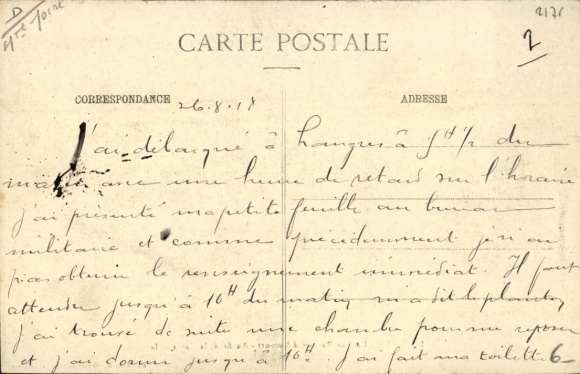 2
CARTE POSTALE
CORRESPONDANCE
ADRESSE
26.8.18
J'ai débarqué à Langres à 5H 1/2 du
matin avec une heure de retard sur l'horaire
j'ai présenté ma petite feuille au bureau
militaire et comme précédemment je n'ai
pas obtenu le renseignement immédiat. Il faut
attendre jusqu'à 10H du matin m'a dit le planton
j'ai trouvé de suite une chambre pour me reposer
et j'ai dormi jusqu'à 10H. J'ai fait ma toilette
6-